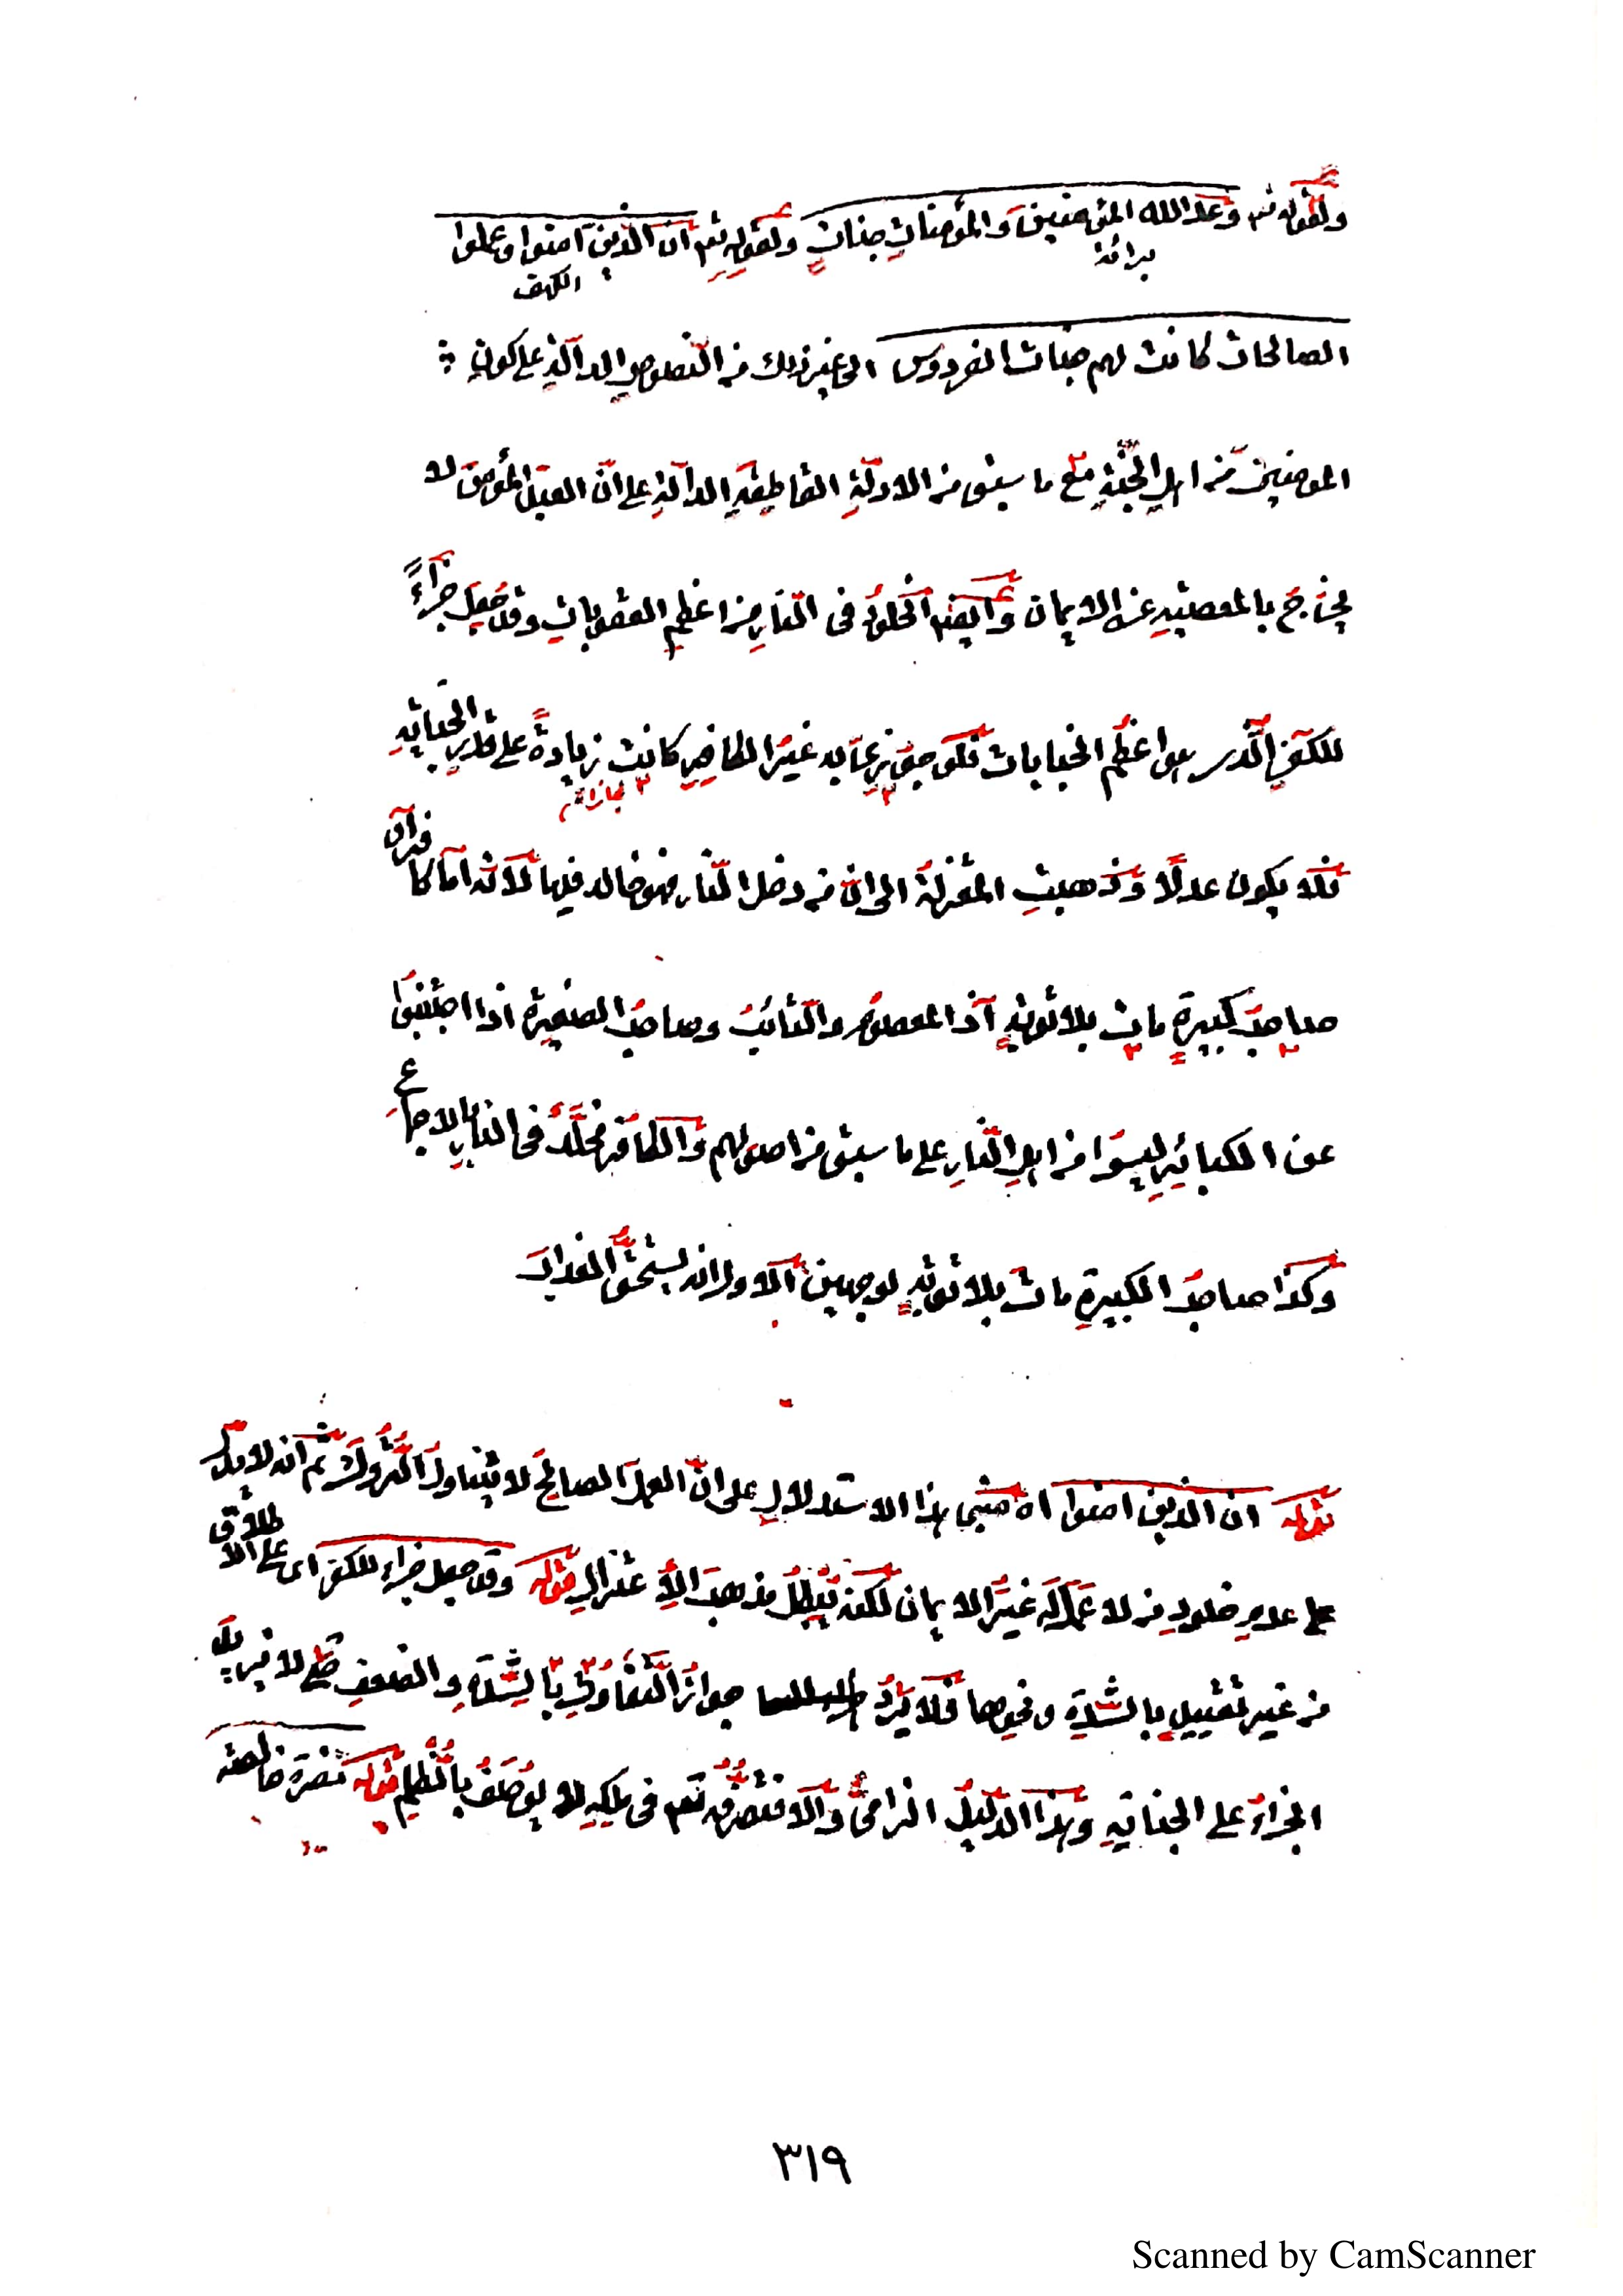 ولقوله تع وعد الله المؤمنين والمؤمنات جنات ولقوله تع ان الذين آمنوا وعملوا
برائة
الكهف
الصالحات كانت لهم جنات الفردوس الى غير ذلك من النصوص الدالة على كون
المومنين من اهل الجنة مع ما سبق من الادلة القاطعة الدالة على انّ العبد المؤمن لا
يخرج بالمعصية عن الايمان وايضا الخلود في النار من اعظم العقوبات وقد جعل جزاءً
للكفر الذى هو اعظم الجنايات فلو جوزى به غير الكافر كانت زيادة على قدر الجناية
فلا يكون عدلًا وذهبت المعتزلة الى ان من دخل النار فهو خالد فيها لانه اما كافر او
صاحب كبيرة مات بلا توبة اذ المعصوم والتائب وصاحب الصغيرة اذا اجتنبوا
عن الكبائر ليسوا من اهل النار على ما سبق من اصولهم والكافر مخلّد في النار بالاجماع
وكذا صاحب الكبيرة مات بلا توبة لوجهين الاول انه يستحق العذاب
قوله ان الذين امنوا اه مبنى هذا الاستدلال على انّ العمل الصالح لا يتناول التروك ثم انه لا يدل
على عدم خلود من لا عمل له غير الايمان لكنه يبطل مذهب الاعتزال قوله وقد جعل جزاء للكفر اى على الاطلاق
من غير تقييد بالشدة ونحوها فلا يرد جواز التفاوت بالشدة والضعف حتى لا يزيد
الجزاء على الجناية وهذا الدليل الزامىّ والا فتصرفه تع في ملكه لا يوصف بالظلم قوله مضرة خالصة
٣١٩
Scanned by CamScanner